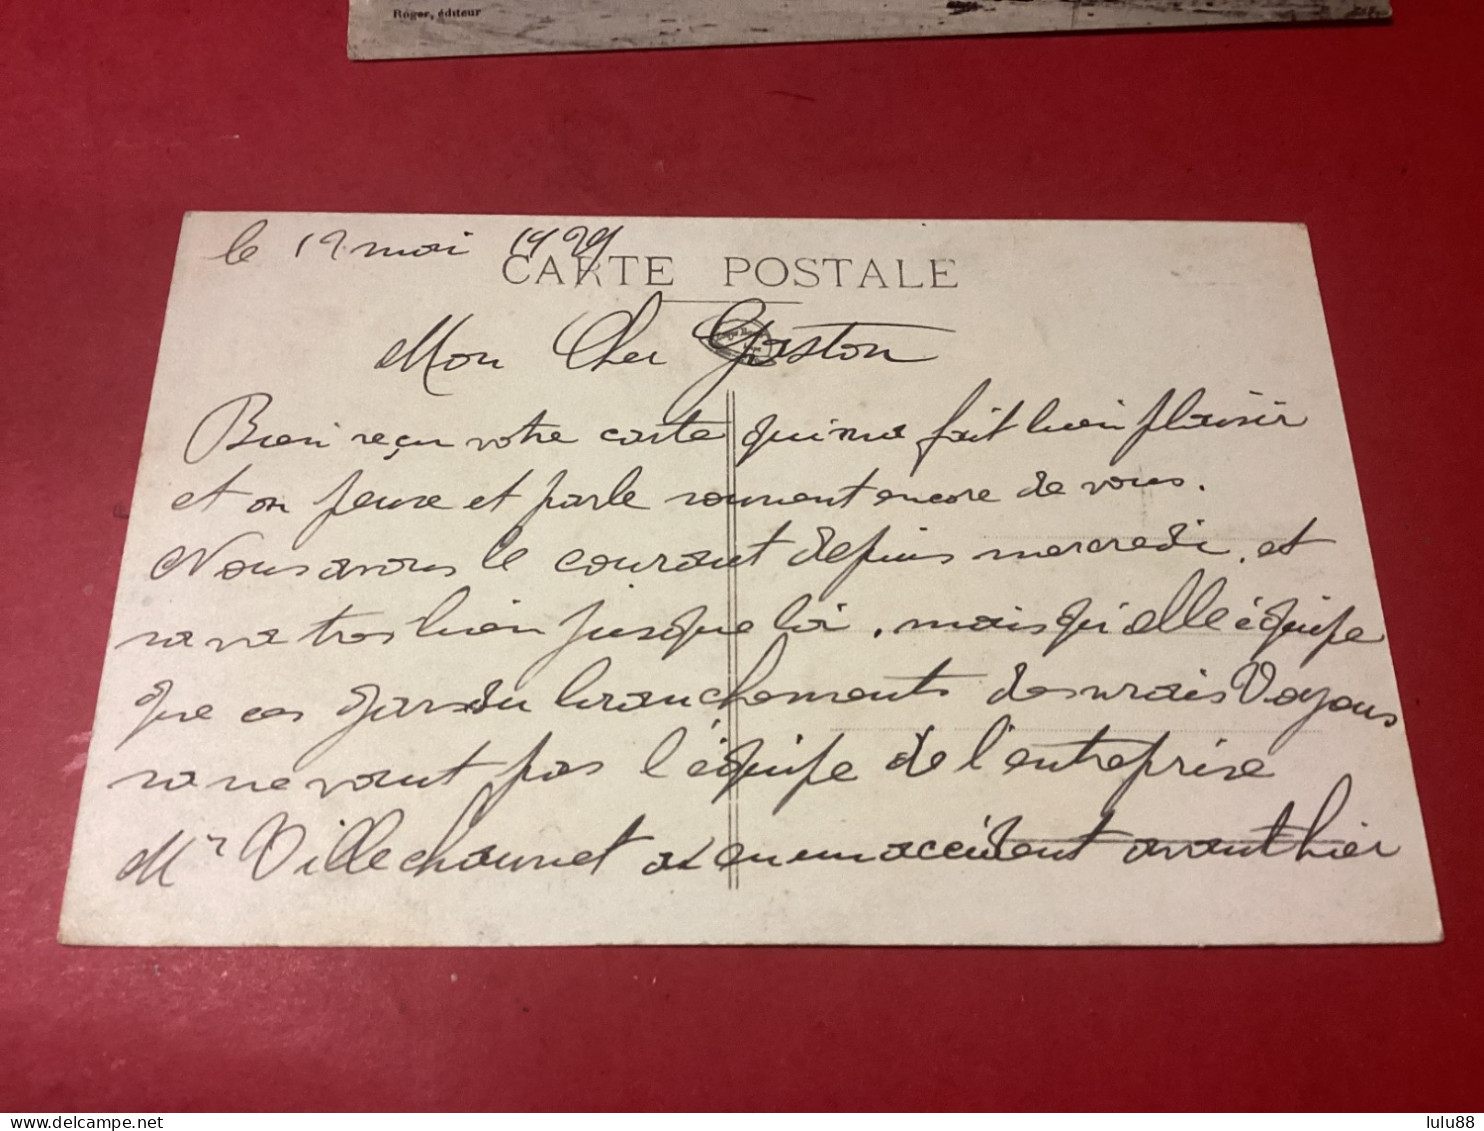 Roger, éditeur
le 12 mai 1929
CARTE POSTALE
Mon Cher Gaston
Bien reçu votre carte qui ma fait bien plaisir
et on pense et parle souvent encore de vous.
Nous avons le courant depuis mercredi, et
sa va tres bien jusque la, mais qu'elle équipe
que ces gars du branchements des vrais Voyous
sa ne vaut pas l'équipe de l'entreprise
Mr Villechaunet a eu un accident avant hier
delcampe.net
lulu88